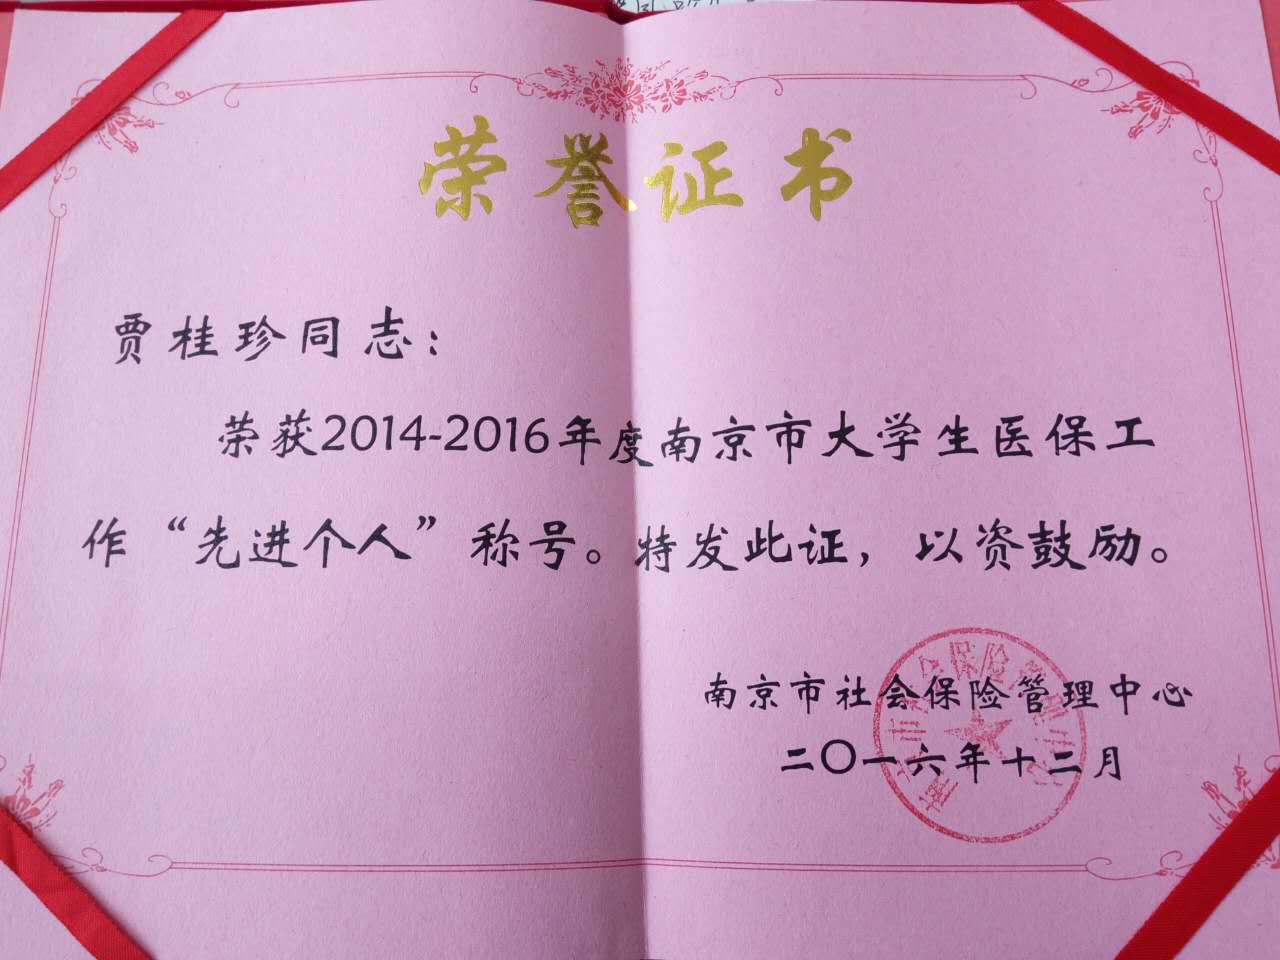 荣誉证书
贾桂珍同志：
荣获2014-2016年度南京市大学生医保工
作“先进个人”称号。特发此证，以资鼓励。
南京市社会保险管理中心
二〇一六年十二月